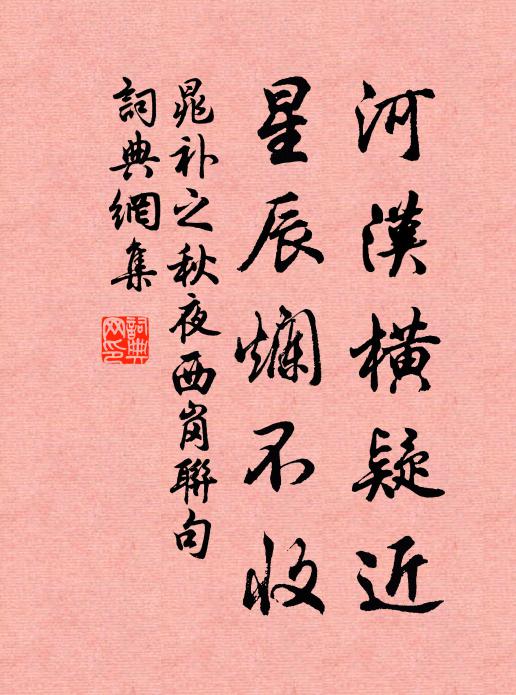 河漢橫疑近
星辰爛不收
晁补之秋夜西崗聯句
詞典網集
詞典网印